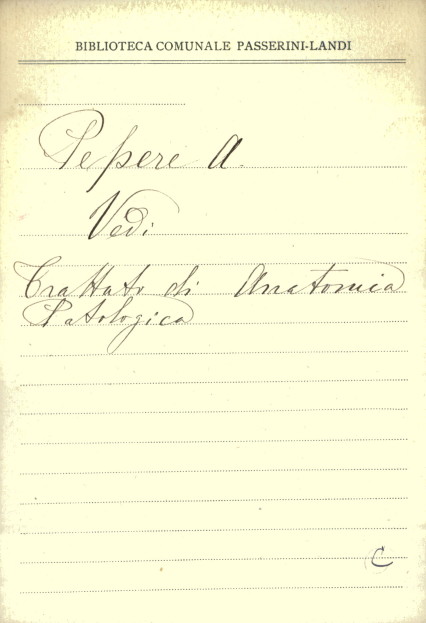 BIBLIOTECA COMUNALE PASSERINI-LANDI
Pepere A.
Vedi
Trattato di Anatomia
Patologica
C